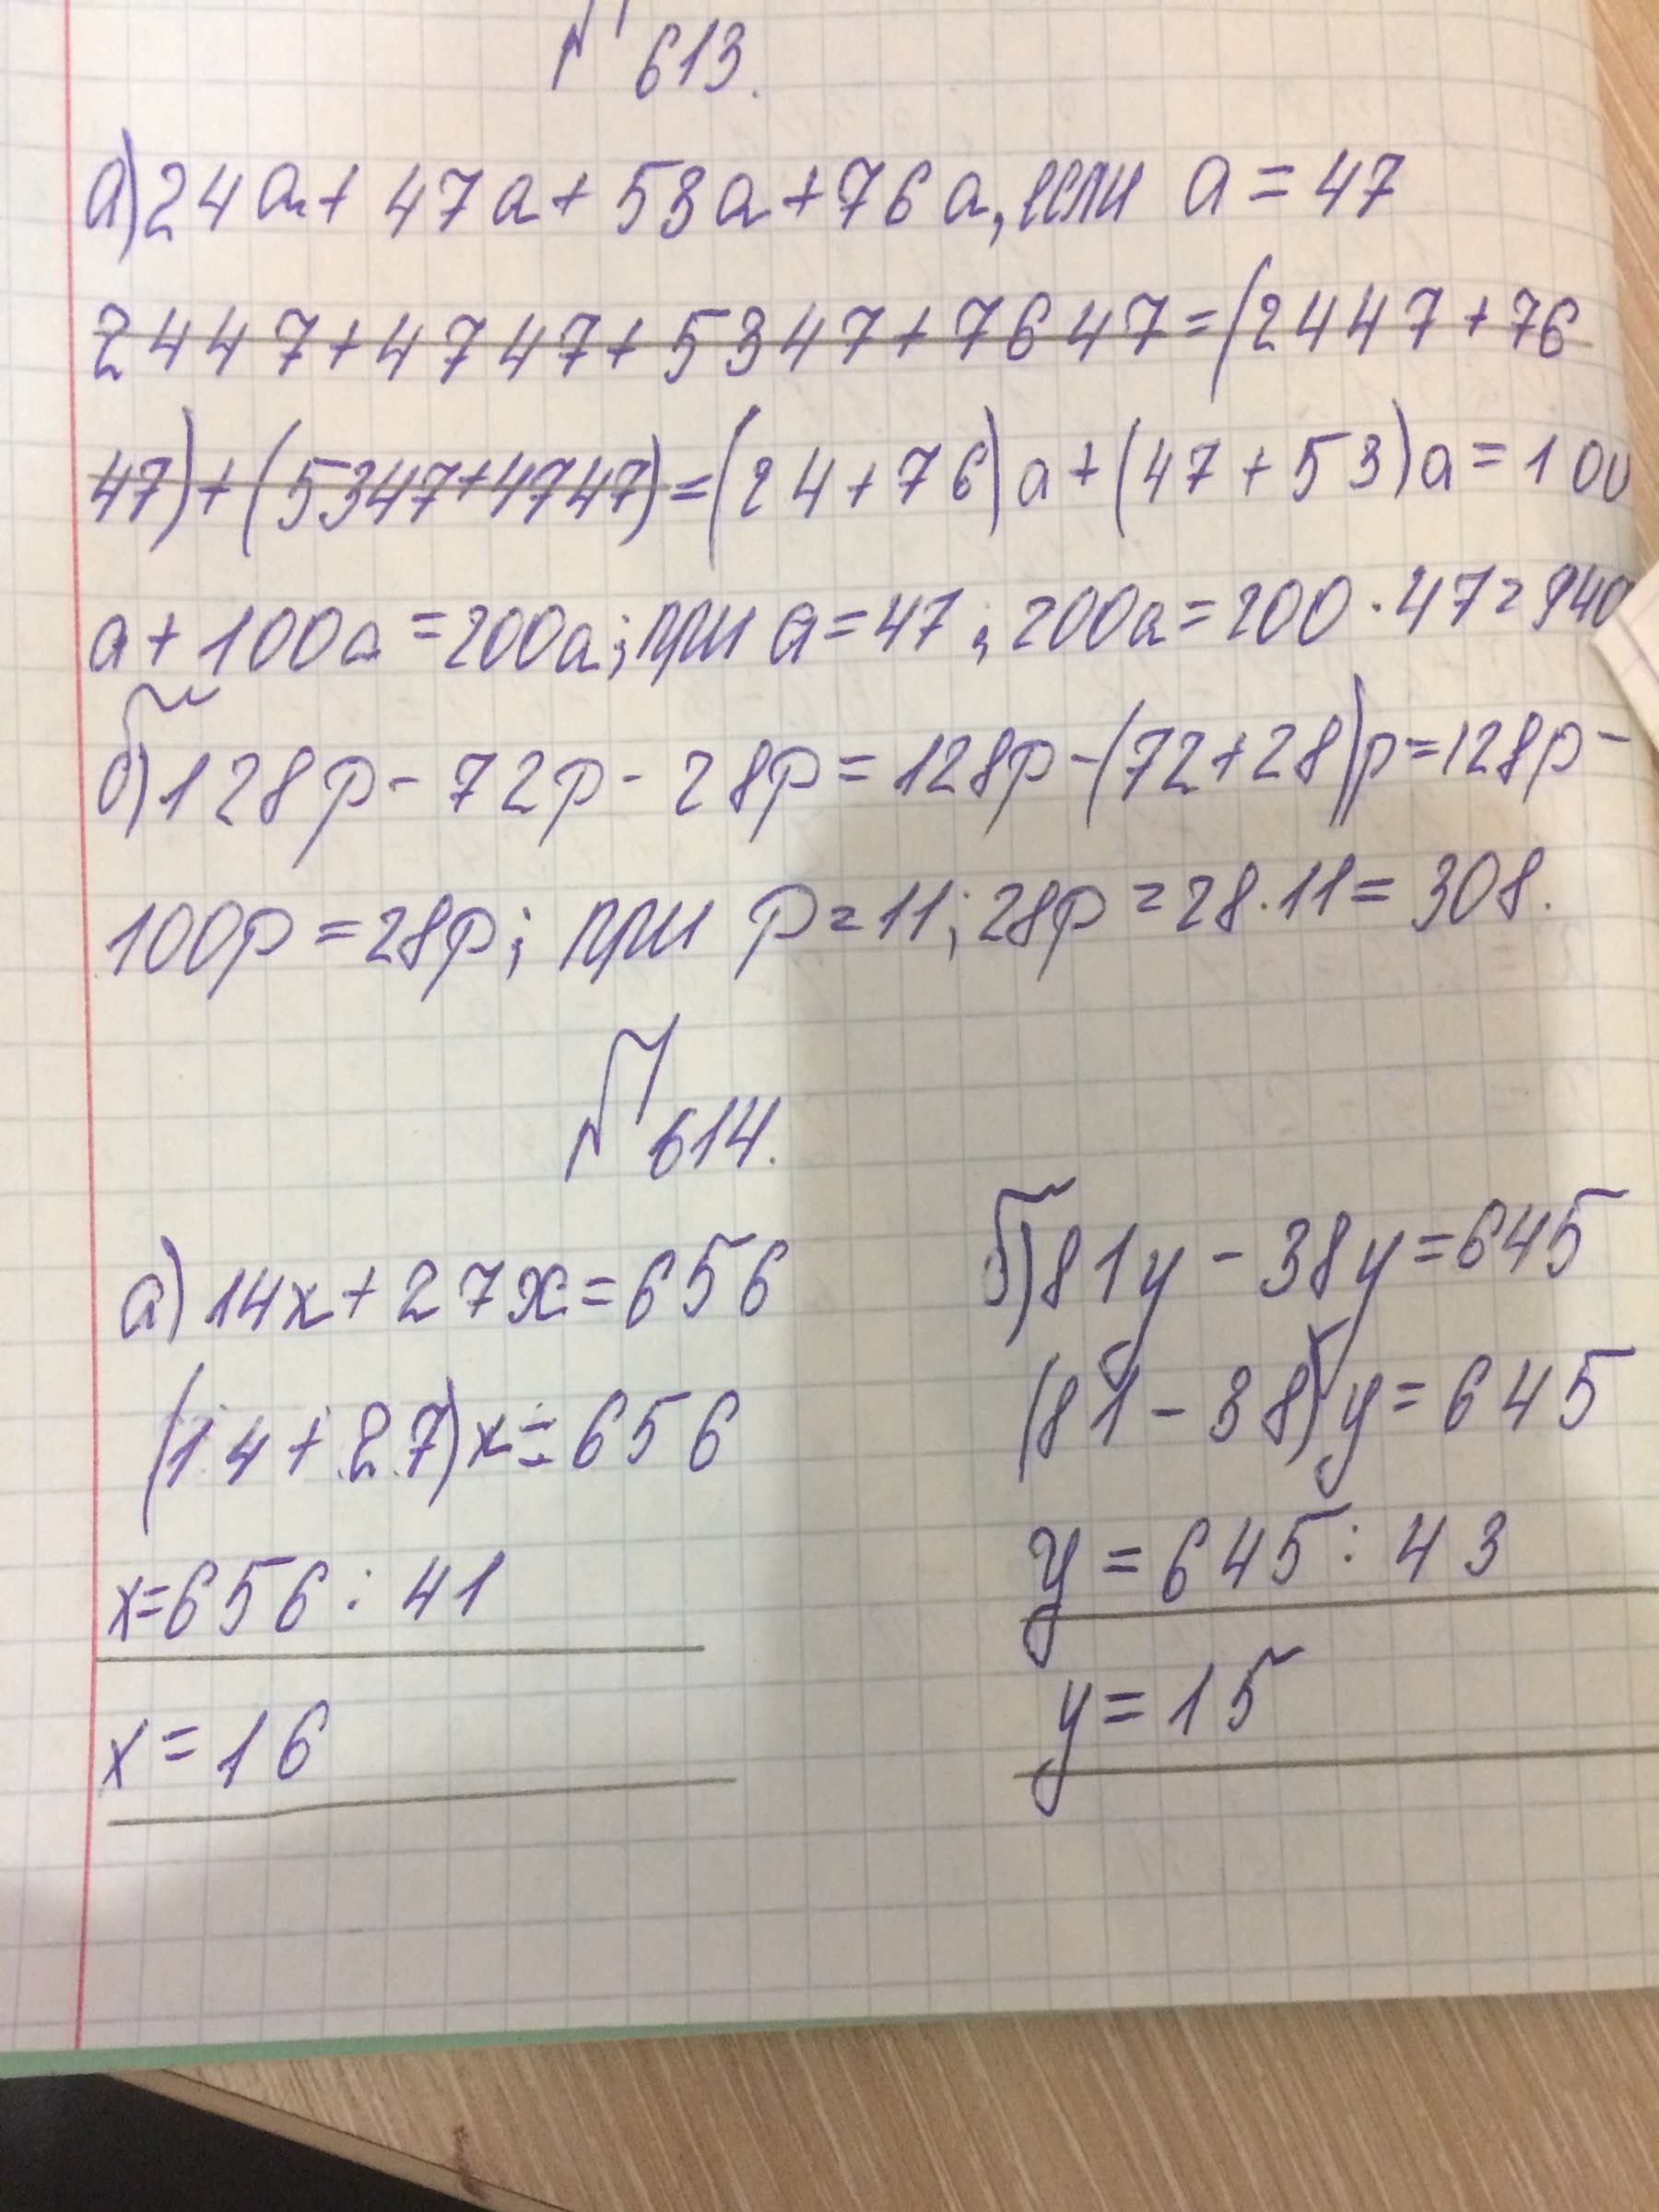 № 613.
а) 24a + 47a + 53a + 76a, если a = 47
2447 + 4747 + 5347 + 7647 = (2447 + 76
47) + (5347 + 4747) = (24 + 76)a + (47 + 53)a = 100
a + 100a = 200a; при a = 47; 200a = 200 · 47 = 940
б) 128p - 72p - 28p = 128p - (72 + 28)p = 128p -
100p = 28p; при p = 11; 28p = 28 · 11 = 308.
№ 614.
а) 14x + 27x = 656
(14 + 27)x = 656
x = 656 : 41
x = 16
б) 81y - 38y = 645
(81 - 38)y = 645
y = 645 : 43
y = 15